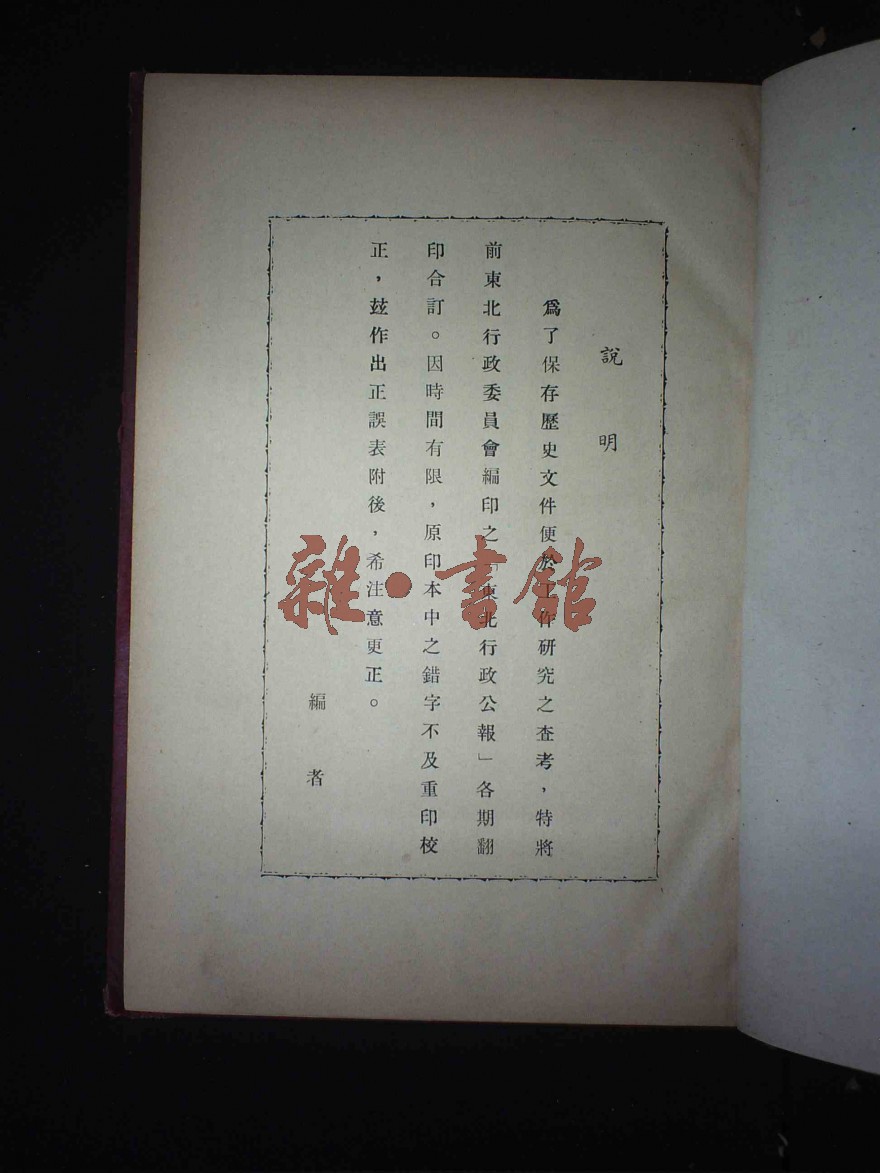 說明
爲了保存歷史文件便於工作研究之查考，特將
前東北行政委員會編印之「東北行政公報」各期翻
印合訂。因時間有限，原印本中之錯字不及重印校
正，玆作出正誤表附後，希注意更正。
編者
雜·書館